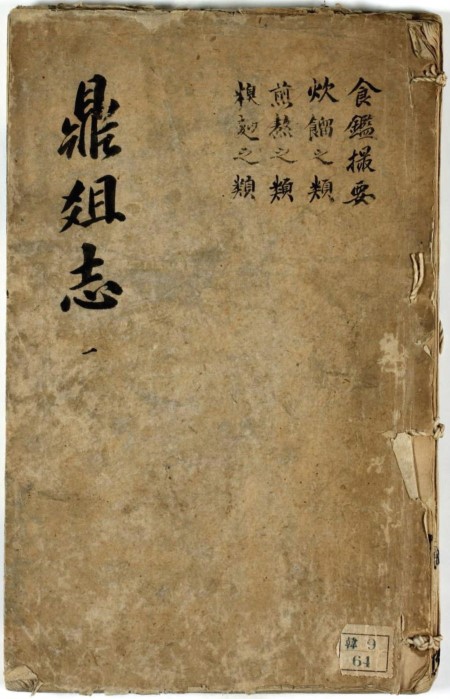 食鑑撮要
炊餾之類
煎熬之類
糗麪之類
鼎俎志
一
韓 9
64